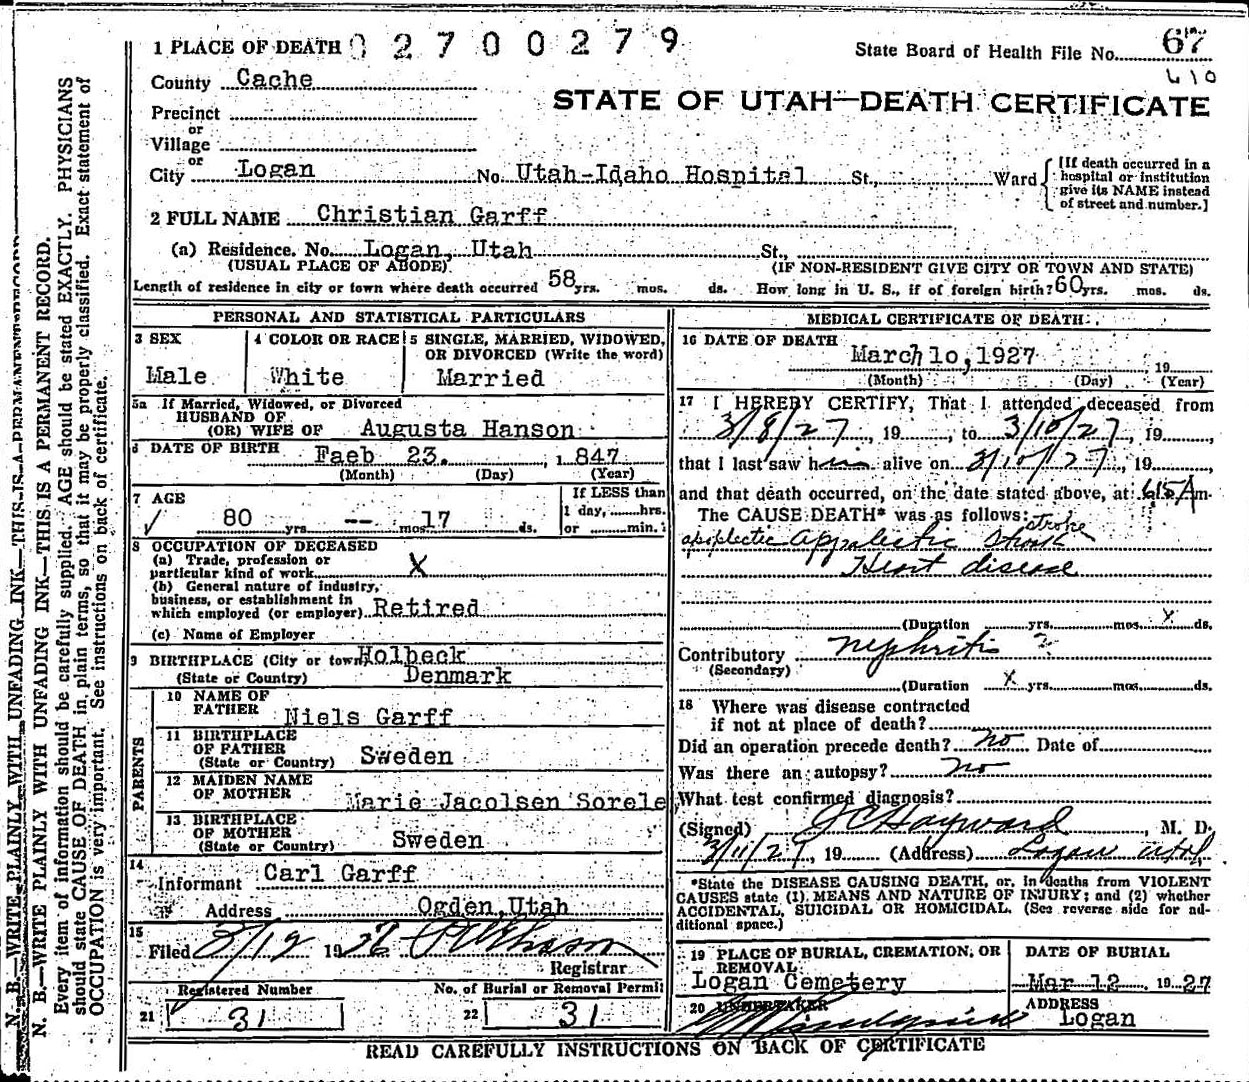 1 PLACE OF DEATH 02700279
State Board of Health File No. 67
610
County Cache
STATE OF UTAH—DEATH CERTIFICATE
Precinct
or
Village
or
City Logan No. Utah-Idaho Hospital St., Ward
[If death occurred in a
hospital or institution
give its NAME instead
of street and number.]
2 FULL NAME Christian Garff
(a) Residence. No. Logan, Utah St.,
(USUAL PLACE OF ABODE) (IF NON-RESIDENT GIVE CITY OR TOWN AND STATE)
Length of residence in city or town where death occurred 58 yrs. mos. ds. How long in U. S., if of foreign birth? 60 yrs. mos. ds.
PERSONAL AND STATISTICAL PARTICULARS
3 SEX
Male
4 COLOR OR RACE
White
5 SINGLE, MARRIED, WIDOWED,
OR DIVORCED (Write the word)
Married
5a If Married, Widowed, or Divorced
HUSBAND OF
(OR) WIFE OF Augusta Hanson
6 DATE OF BIRTH Faeb 23. 1847
(Month) (Day) (Year)
7 AGE
80 yrs -- mos 17 ds.
If LESS than
1 day, hrs.
or min.
8 OCCUPATION OF DECEASED
(a) Trade, profession or
particular kind of work X
(b) General nature of industry,
business, or establishment in
which employed (or employer) Retired
(c) Name of Employer
9 BIRTHPLACE (City or town) Holbeck
(State or Country) Denmark
PARENTS
10 NAME OF
FATHER Niels Garff
11 BIRTHPLACE
OF FATHER Sweden
(State or Country)
12 MAIDEN NAME
OF MOTHER Marie Jacolsen Sorele
13 BIRTHPLACE
OF MOTHER Sweden
(State or Country)
14
Informant Carl Garff
Address Ogden, Utah
15
Filed 19
Registrar
Registered Number
21 31
No. of Burial or Removal Permit
22 31
MEDICAL CERTIFICATE OF DEATH
16 DATE OF DEATH
March 10, 1927 19
(Month) (Day) (Year)
17 I HEREBY CERTIFY, That I attended deceased from
3/8/27, 19, to 3/10/27, 19,
that I last saw him alive on 3/10/27, 19
and that death occurred, on the date stated above, at 615 A m.
The CAUSE DEATH* was as follows:
stroke
apoplectic
Heart disease
(Duration yrs. mos. X ds.
Contributory nephritis ?
(Secondary)
(Duration X yrs. mos. ds.
18 Where was disease contracted
if not at place of death?
Did an operation precede death? no Date of
Was there an autopsy? no
What test confirmed diagnosis?
(Signed) JC Hayward, M. D.
3/11/27, 19 (Address) Logan Utah
*State the DISEASE CAUSING DEATH, or, in deaths from VIOLENT
CAUSES state (1) MEANS AND NATURE OF INJURY; and (2) whether
ACCIDENTAL, SUICIDAL OR HOMICIDAL. (See reverse side for ad-
ditional space.)
19 PLACE OF BURIAL, CREMATION, OR
REMOVAL
Logan Cemetery
DATE OF BURIAL
Mar 12 1927
20 UNDERTAKER
ADDRESS
Logan
READ CAREFULLY INSTRUCTIONS ON BACK OF CERTIFICATE
N. B.—WRITE PLAINLY WITH UNFADING INK—THIS IS A PERMANENT RECORD.
N. B.—WRITE PLAINLY WITH UNFADING INK—THIS IS A PERMANENT RECORD.
Every item of information should be carefully supplied. AGE should be stated EXACTLY. PHYSICIANS
should state CAUSE OF DEATH in plain terms, so that it may be properly classified. Exact statement of
OCCUPATION is very important. See instructions on back of certificate.